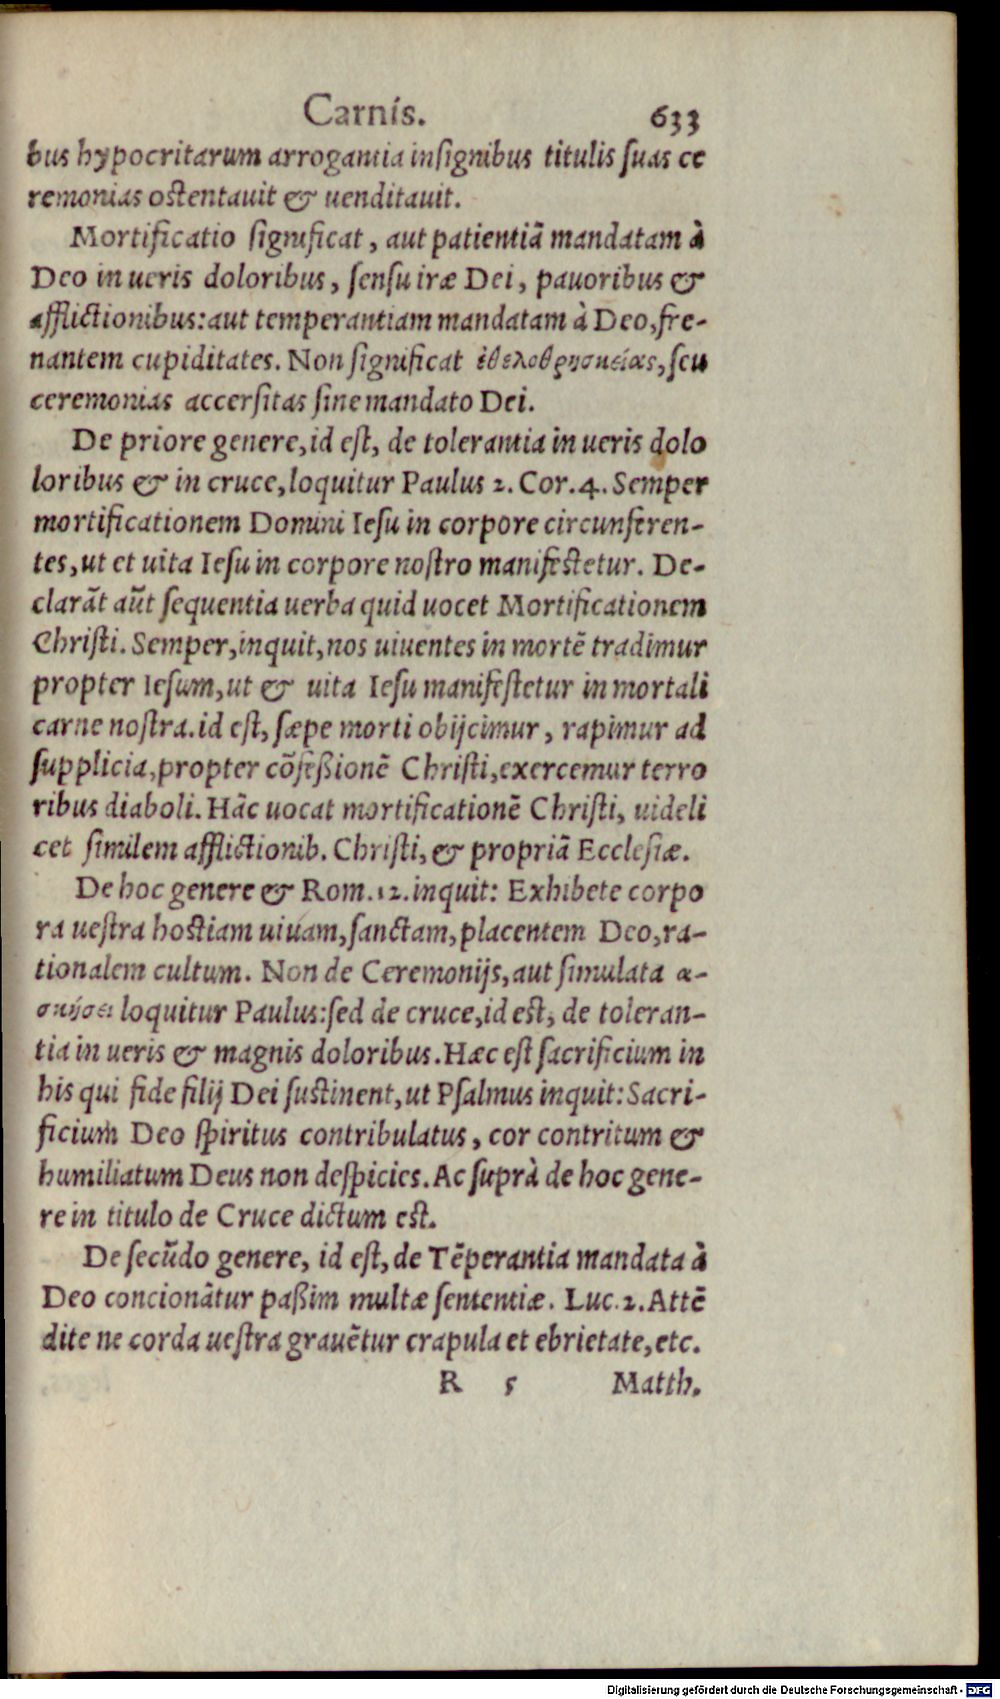 Carnis. 633
bus hypocritarum arrogantia insignibus titulis suas ce
remonias ostentauit & uenditauit.
Mortificatio significat, aut patientiã mandatam à
Deo in ueris doloribus, sensu iræ Dei, pauoribus &
afflictionibus: aut temperantiam mandatam à Deo, fre-
nantem cupiditates. Non significat ἐθελοθρησκείας, seu
ceremonias accersitas sine mandato Dei.
De priore genere, id est, de tolerantia in ueris dolo
loribus & in cruce, loquitur Paulus 2. Cor. 4. Semper
mortificationem Domini Iesu in corpore circunferen-
tes, ut et uita Iesu in corpore nostro manifestetur. De-
clarãt aũt sequentia uerba quid uocet Mortificationem
Christi. Semper, inquit, nos uiuentes in mortẽ tradimur
propter Iesum, ut & uita Iesu manifestetur in mortali
carne nostra. id est, sæpe morti obijcimur, rapimur ad
supplicia, propter cõfeßionẽ Christi, exercemur terro
ribus diaboli. Hãc uocat mortificationẽ Christi, uideli
cet similem afflictionib. Christi, & propriã Ecclesiæ.
De hoc genere & Rom. 12. inquit: Exhibete corpo
ra uestra hostiam uiuam, sanctam, placentem Deo, ra-
tionalem cultum. Non de Ceremonijs, aut simulata α-
σκήσει loquitur Paulus: sed de cruce, id est, de toleran-
tia in ueris & magnis doloribus. Hæc est sacrificium in
his qui fide filij Dei sustinent, ut Psalmus inquit: Sacri-
ficium Deo spiritus contribulatus, cor contritum &
humiliatum Deus non despicies. Ac suprà de hoc gene-
re in titulo de Cruce dictum est.
De secũdo genere, id est, de Tẽperantia mandata à
Deo concionãtur paßim multæ sententiæ. Luc. 2. Attẽ
dite ne corda uestra grauẽtur crapula et ebrietate, etc.
R 5 Matth.
Digitalisierung gefördert durch die Deutsche Forschungsgemeinschaft - DFG